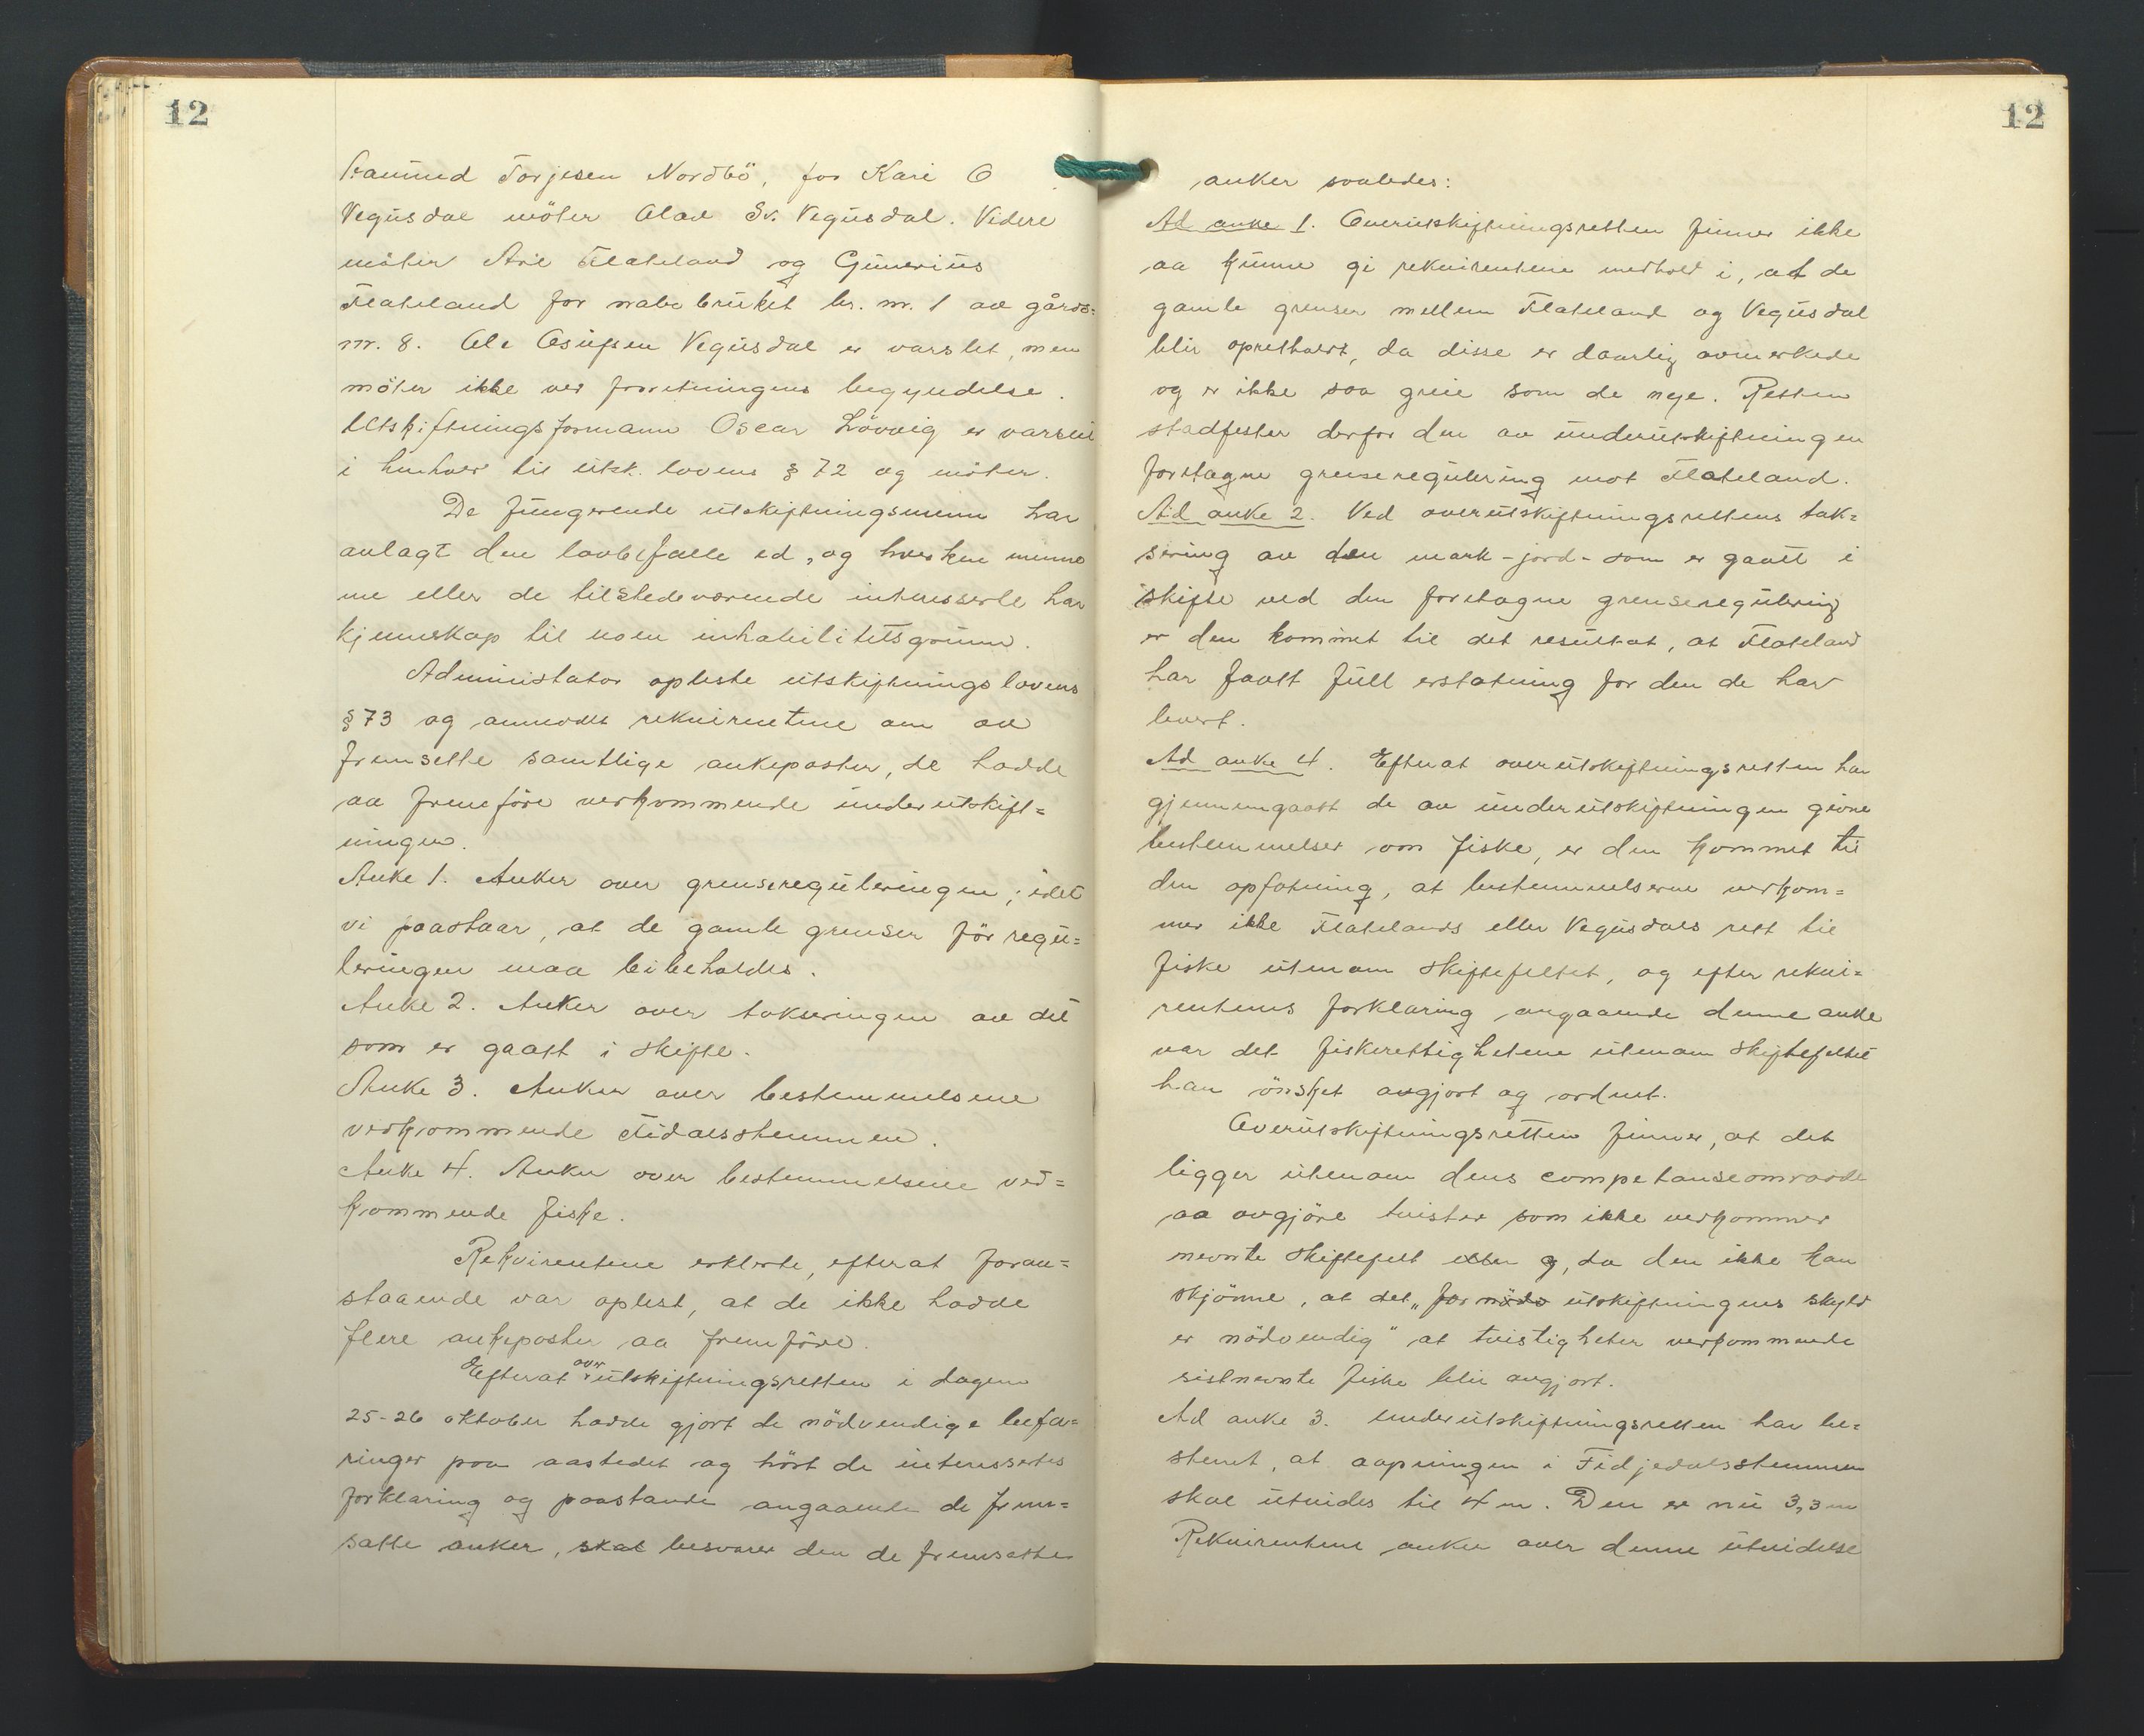 12
Torjesen Nordbö, for Kari O
Vegusdal möter Olav Sv. Vegusdal. Videre
möter Are Flateland og Gunerius
Flateland for nabobruket br. nr. 1 av gårds=
nr. 8. Ole Osufsen Vegusdal er varslet, men
möter ikke ved forretningens begyndelse.
Utskiftningsformann Oscar Lövvig er varslet
i henhold til utsk. lovens § 72 og möter.
De fungerende utskiftningsmenn har
avlagt den lovbefalte ed, og hverken menne
ne eller de tilstedeværende interesserte har
kjennskap til noen inhabilitetsgrunn.
Administator opleste utskiftningslovens
§ 73 og anmodet rekvirentene om aa
fremsette samtlige ankeposter, de hadde
aa fremföre vedkommende underutskift=
ningen.
Anke 1. Anker over grensereguleringen; idet
vi paastaar, at de gamle grenser för regu=
leringen maa bibeholdes.
Anke 2. Anker over takseringen av det
som er gaatt i skifte.
Anke 3. Anker over bestemmelsene
vedkommende Fidalsstemmen.
Anke 4. Anker over bestemmelsene ved=
kommende fiske.
Rekvirentene erklerte, efterat foran=
staaende var oplest, at de ikke hadde
flere ankeposter aa fremföre.
Efterat over utskiftningsretten i dagene
25-26 oktober hadde gjort de nödvendige befa=
ringer paa aastedet og hört de interessertes
forklaring og paastande angaaende de frem=
satte anker, skal besvarer den de fremsatte
12
anker saaledes:
Ad anke 1. Overutskiftningsretten finner ikke
aa kunne gi rekvirentene medhold i, at de
gamle grenser mellem Flateland og Vegusdal
blir oprethold, da disse er daarlig avmerkede
og er ikke saa greie som de nye. Retten
stadfester derfor den av underutskiftningen
foretagne grenseregulering mot Flateland.
Ad anke 2. Ved overutskiftningsrettens tak=
sering av den mark - jord - som er gaatt i
skifte ved den foretagne grenseregulering
er den kommet til det resultat, at Flateland
har faatt full erstatning for den de har
levert.
Ad anke 4. Efterat overutskiftningsretten har
gjennemgaatt de av underutskiftningen givne
bestemmelser om fiske, er den kommet til
den opfatning, at bestemmelserne vedkom=
mer ikke Flatelands eller Vegusdals rett til
fiske utenom skiftefeltet, og efter rekvi=
rentens forklaring angaaende denne anke
var det fiskerettighetene utenom skiftefeltet
han önsket avgjort og ordnet.
Overutskiftningsretten finner, at det
ligger utenom dens competanseomraade
aa avgjöre tvister som ikke vedkommer
nevnte skiftefelt eller g, da den ikke kan
skjönne, at det „for nöds utskiftningens skyld
er nödvendig" at tvistigheter vedkommende
sistnevnte fiske blir avgjort.
Ad anke 3. Underutskiftningsretten har be=
stemt, at aapningen i Fidjedalsstemmen
skal utvides til 4 m. Den er nu 3,3 m
Rekvirentene anker over denne utvidelse